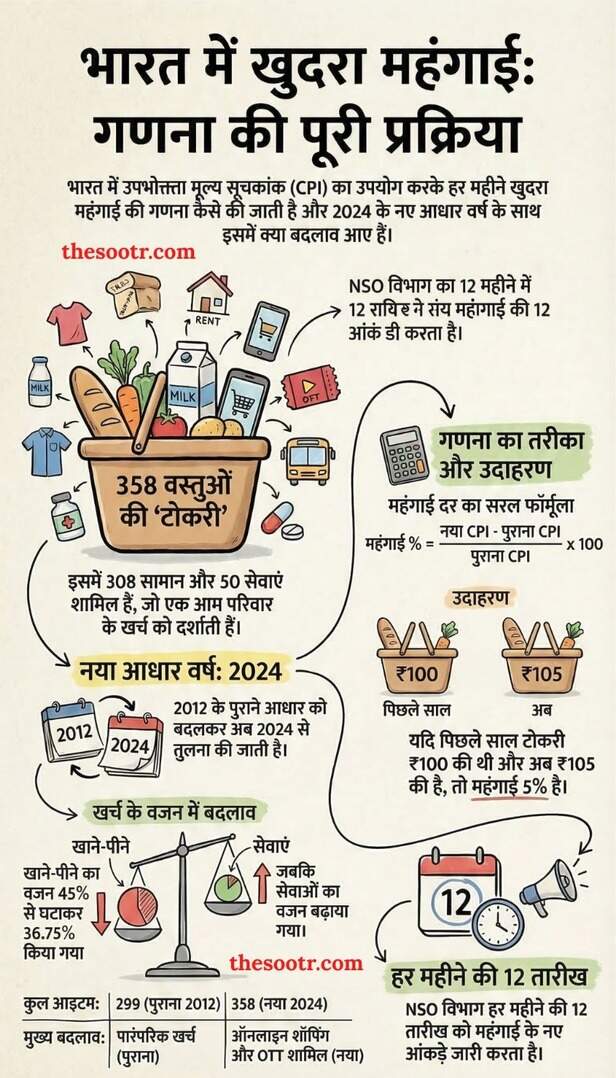 भारत में खुदरा महंगाई:
गणना की पूरी प्रक्रिया
भारत में उपभोक्त्ता मूल्य सूचकांक (CPI) का उपयोग करके हर महीने खुदरा
महंगाई की गणना कैसे की जाती है और 2024 के नए आधार वर्ष के साथ
इसमें क्या बदलाव आए हैं।
thesootr.com
RENT
MILK
MILK
OFT
NSO विभाग का 12 महीने में
12 ने संय महंगाई की 12
आंकं डी करता है।
358 वस्तुओं
की ‘टोकरी’
इसमें 308 सामान और 50 सेवाएं
शामिल हैं, जो एक आम परिवार
के खर्च को दर्शाती हैं।
गणना का तरीका
और उदाहरण
महंगाई दर का सरल फॉर्मूला
महंगाई % = नया CPI - पुराना CPI / पुराना CPI x 100
उदाहरण
₹100
₹105
पिछले साल
अब
यदि पिछले साल टोकरी
₹100 की थी और अब ₹105
की है, तो महंगाई 5% है।
नया आधार वर्ष: 2024
2012
2024
2012 के पुराने आधार को
बदलकर अब 2024 से
तुलना की जाती है।
खर्च के वजन में बदलाव
खाने-पीने
सेवाएं
खाने-पीने का
वजन 45%
से घटाकर
36.75%
किया गया
जबकि
सेवाओं का
वजन बढ़ाया
गया।
thesootr.com
कुल आइटम: 299 (पुराना 2012) 358 (नया 2024)
मुख्य बदलाव: पारंपरिक खर्च (पुराना) ऑनलाइन शॉपिंग और OTT शामिल (नया)
12
हर महीने की 12 तारीख
NSO विभाग हर महीने की 12
तारीख को महंगाई के नए
आंकड़े जारी करता है।